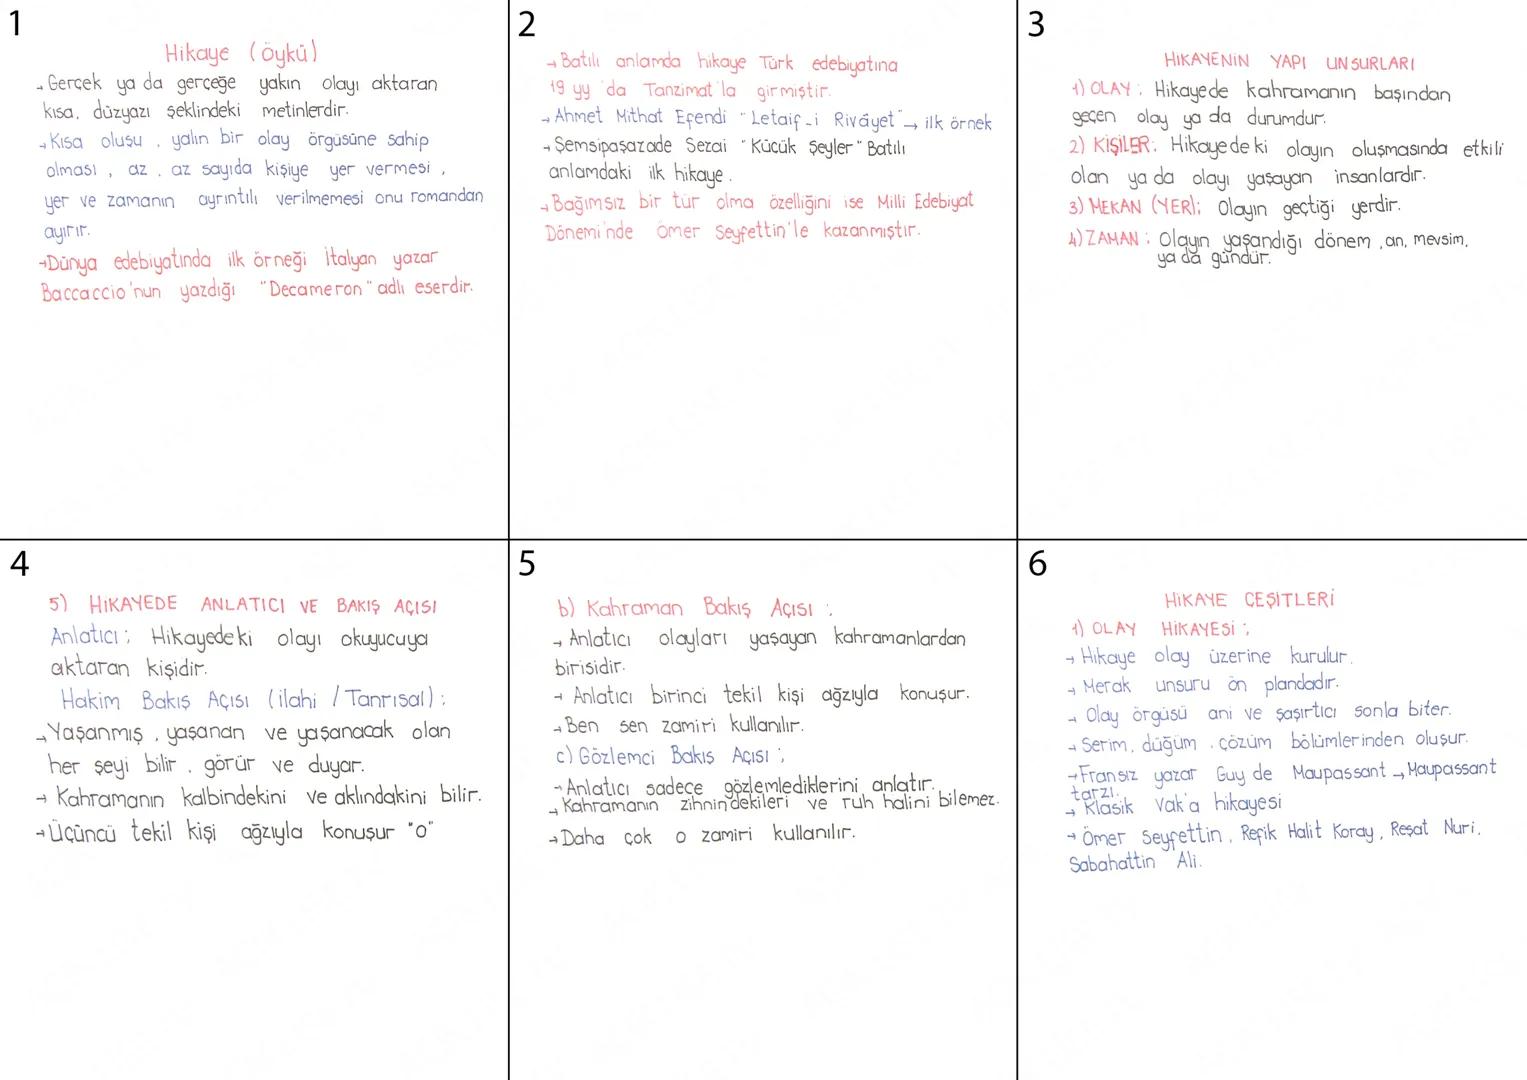 1
Hikaye (öykü)
→ Gerçek ya da gerçeğe yakın olayı aktaran
kısa, düzyazı şeklindeki metinlerdir.
→ Kısa oluşu, yalın bir olay örgüsüne sahip
olması, az, az sayıda kişiye yer vermesi,
yer ve zamanın ayrıntılı verilmemesi onu romandan
ayırır.
→ Dünya edebiyatında ilk örneği İtalyan yazar
Baccaccio'nun yazdığı "Decameron" adlı eserdir.
2
→ Batılı anlamda hikaye Türk edebiyatına
19 yy'da Tanzimat'la girmiştir.
→ Ahmet Mithat Efendi "Letaif-i Rivâyet" → ilk örnek
→ Şemsipaşazade Sezai "Küçük Şeyler" Batılı
anlamdaki ilk hikaye.
→ Bağımsız bir tür olma özelliğini ise Milli Edebiyat
Dönemi'nde Ömer Seyfettin'le kazanmıştır.
3
HİKAYENİN YAPI UNSURLARI
1) OLAY: Hikayede kahramanın başından
geçen olay ya da durumdur.
2) KİŞİLER: Hikayedeki olayın oluşmasında etkili
olan ya da olayı yaşayan insanlardır.
3) MEKAN (YER): Olayın geçtiği yerdir.
4) ZAMAN: Olayın yaşandığı dönem, an, mevsim,
ya da gündür.
4
5) HİKAYEDE ANLATICI VE BAKIŞ AÇISI
Anlatıcı: Hikayedeki olayı okuyucuya
aktaran kişidir.
Hakim Bakış Açısı (ilahi / Tanrısal):
→ Yaşanmış, yaşanan ve yaşanacak olan
her şeyi bilir, görür ve duyar.
→ Kahramanın kalbindekini ve aklındakini bilir.
→ Üçüncü tekil kişi ağzıyla konuşur "o"
5
b) Kahraman Bakış Açısı:
→ Anlatıcı olayları yaşayan kahramanlardan
birisidir.
→ Anlatıcı birinci tekil kişi ağzıyla konuşur.
→ Ben sen zamiri kullanılır.
c) Gözlemci Bakış Açısı:
→ Anlatıcı sadece gözlemlediklerini anlatır.
→ Kahramanın zihnindekileri ve ruh halini bilemez.
→ Daha çok o zamiri kullanılır.
6
HİKAYE ÇEŞİTLERİ
1) OLAY HİKAYESİ:
→ Hikaye olay üzerine kurulur.
→ Merak unsuru ön plandadır.
→ Olay örgüsü ani ve şaşırtıcı sonla biter.
→ Serim, düğüm, çözüm bölümlerinden oluşur.
→ Fransız yazar Guy de Maupassant → Maupassant
tarzı.
→ Klasik Vak'a hikayesi
→ Ömer Seyfettin, Refik Halit Koray, Reşat Nuri,
Sabahattin Ali.